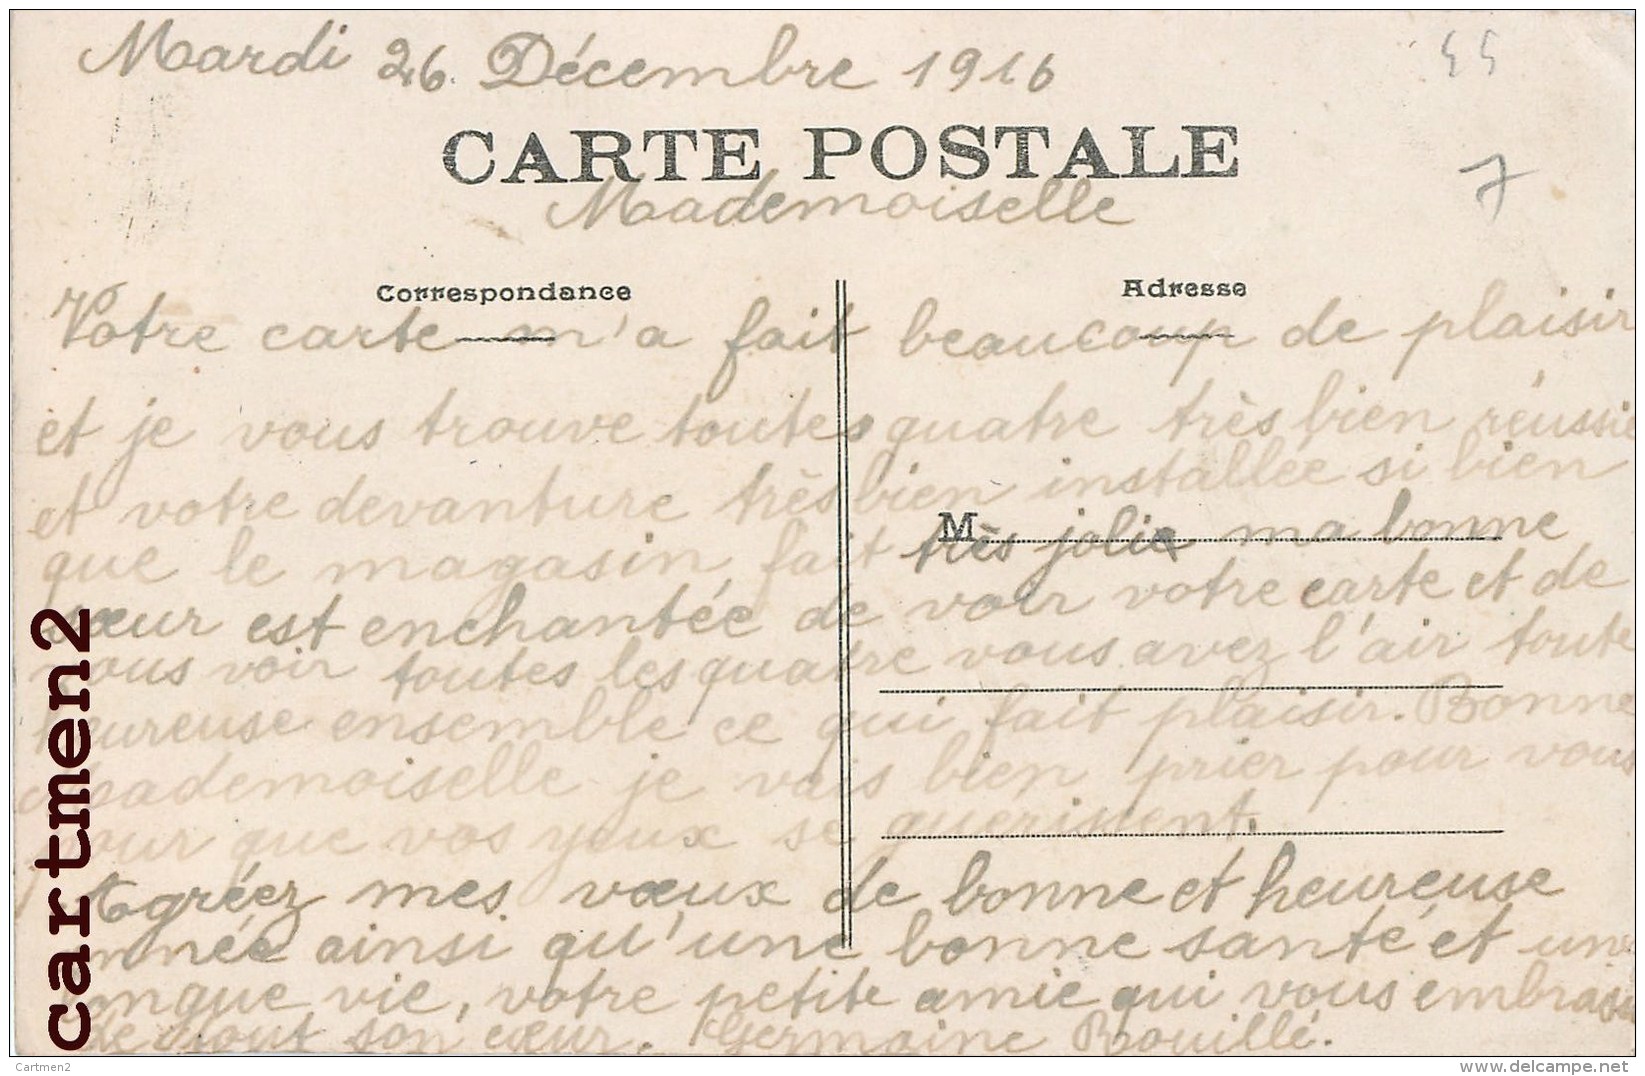 Mardi 26 Décembre 1916
44
CARTE POSTALE
7
Mademoiselle
Correspondance
Adresse
Votre carte m'a fait beaucoup de plaisir
et je vous trouve toutes quatre très bien réussie
et votre devanture très bien installée si bien
M
que le magasin fait très jolie ma bonne
sœur est enchantée de voir votre carte et de
vous voir toutes les quatre vous avez l'air toute
heureuse ensemble ce qui fait plaisir. Bonne
mademoiselle je vais bien prier pour vous
pour que vos yeux se guerissent.
Agréez mes vœux de bonne et heureuse
année ainsi qu'une bonne santé et une
longue vie, votre petite amie qui vous embrasse
de tout son cœur. Germaine Rouillé.
cartmen2
Cartmen2
www.delcampe.net